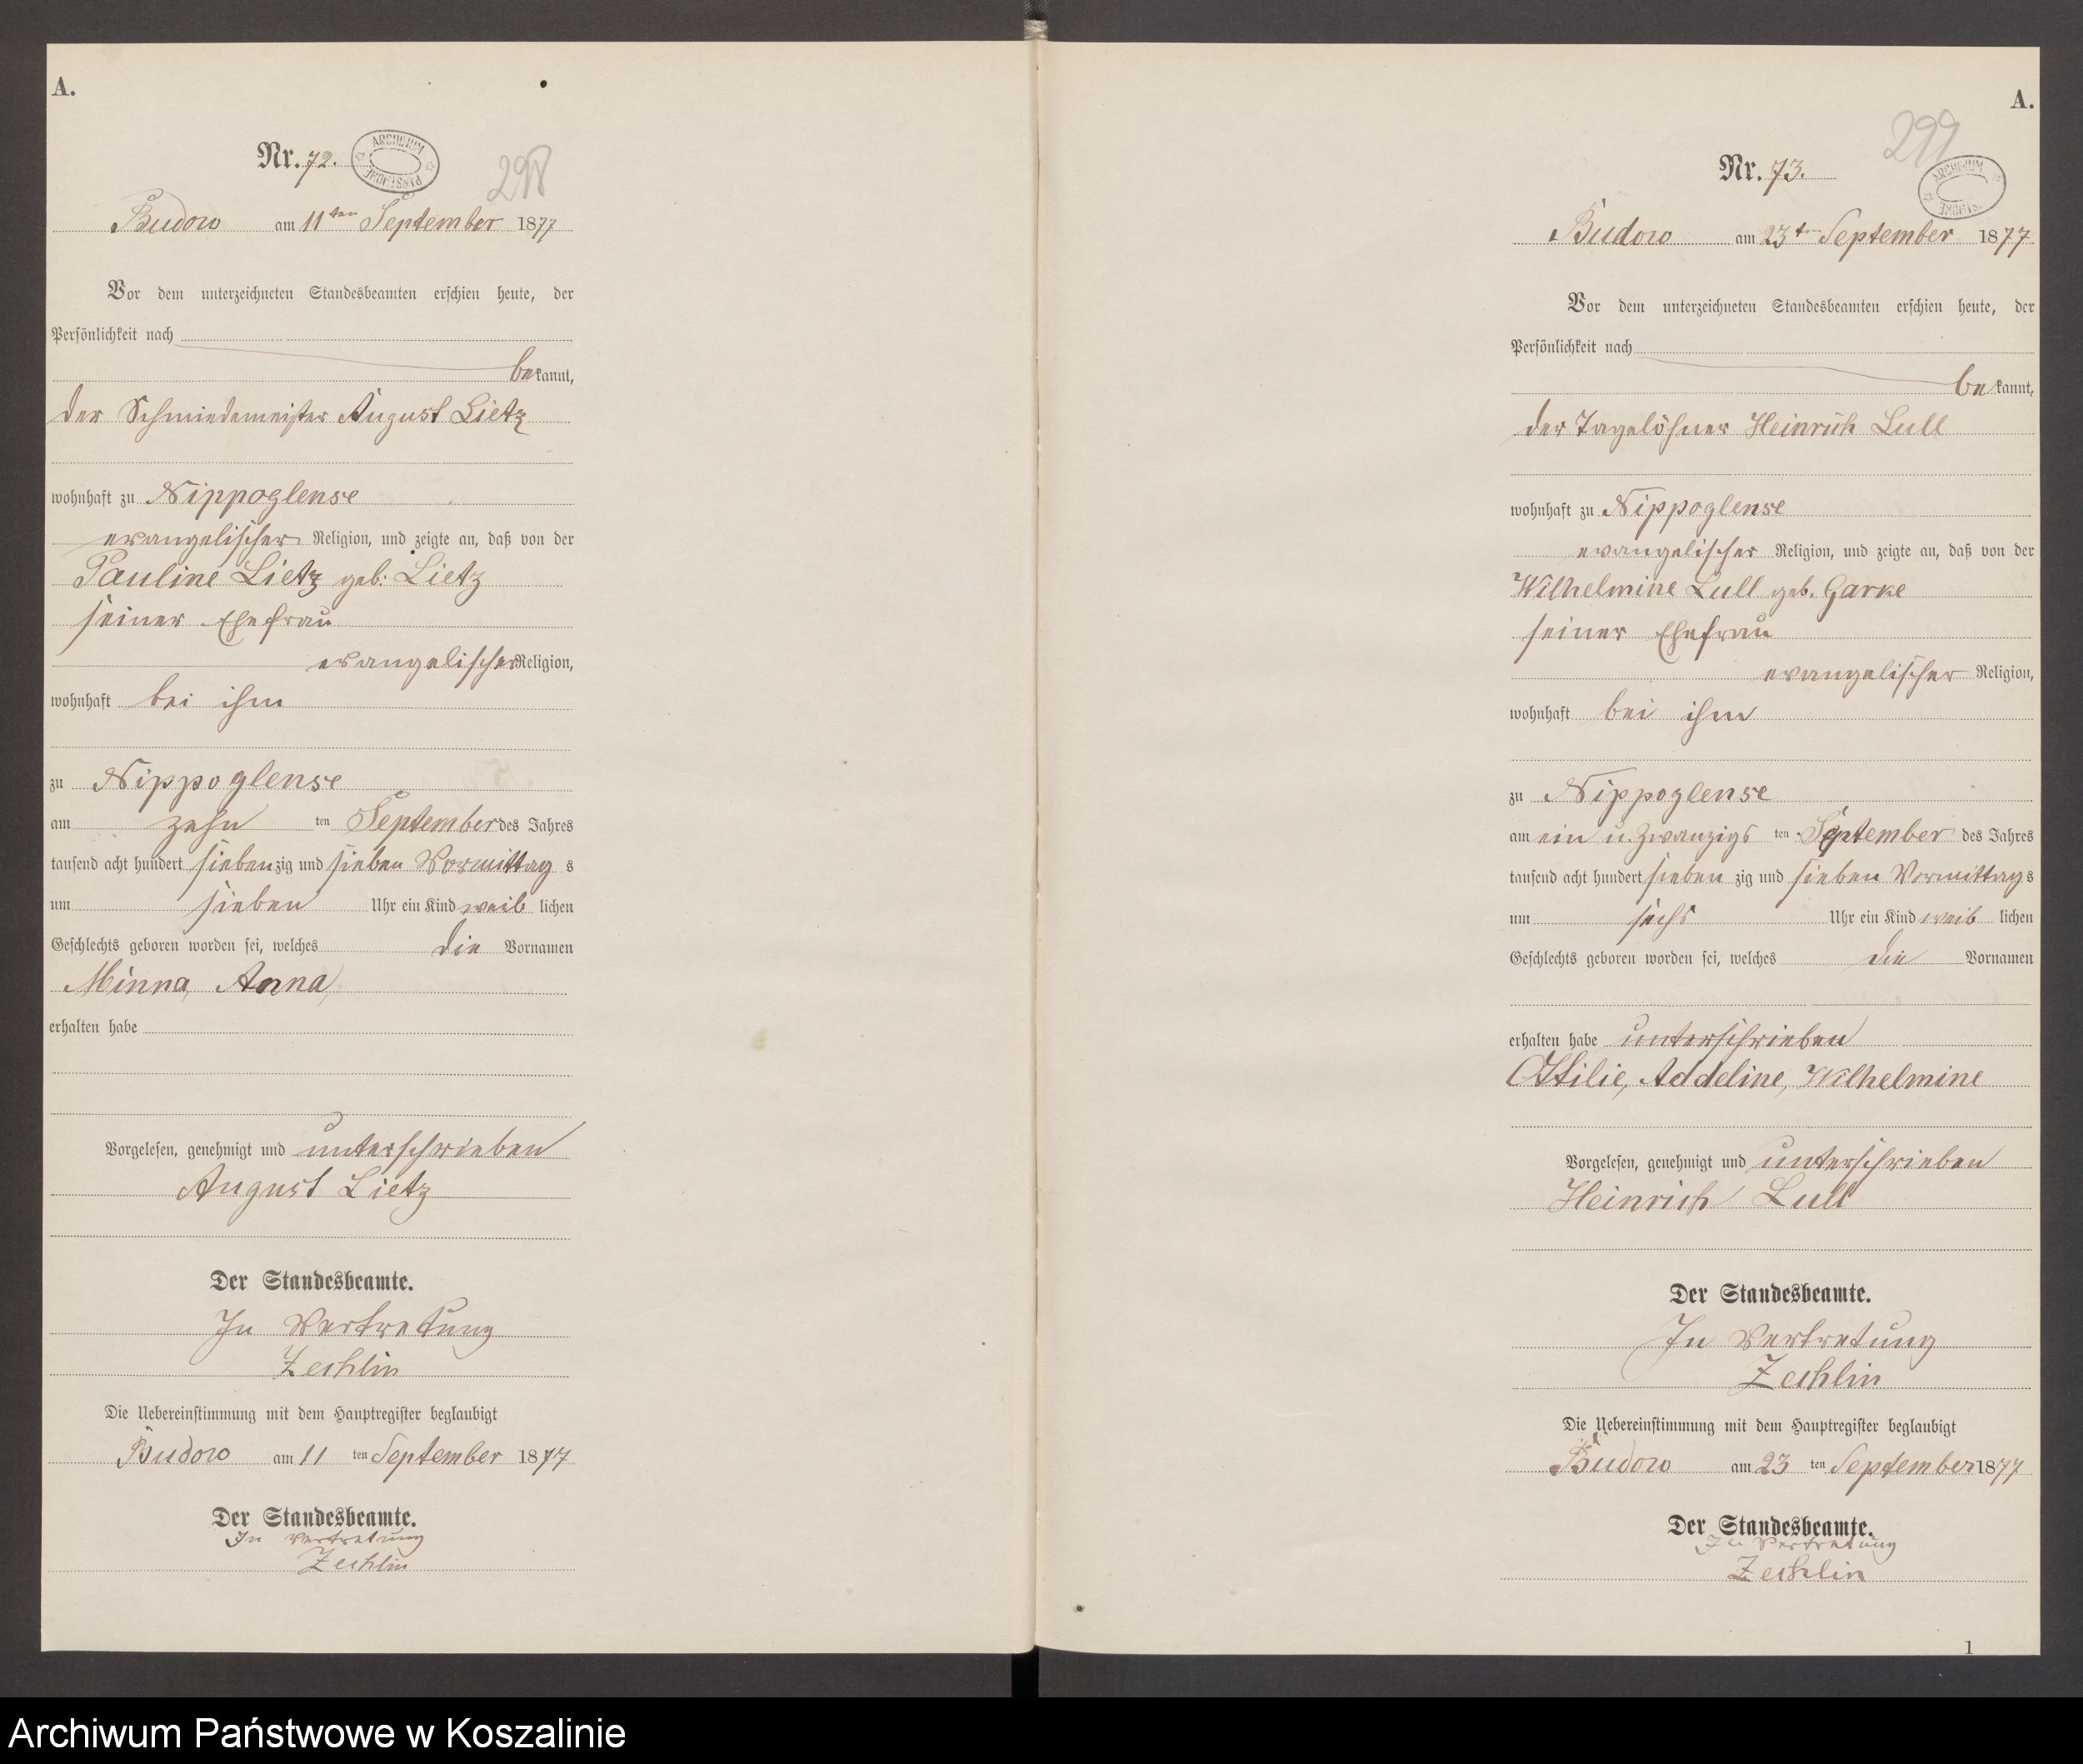 A.
Nr. 72.
ARCHIWUM PAŃSTWOWE
298
Budow am 11ten September 1877
Vor dem unterzeichneten Standesbeamten erschien heute, der
Persönlichkeit nach
bekannt,
der Schmiedemeister August Lietz
wohnhaft zu Nippoglense
evangelischer Religion, und zeigte an, daß von der
Pauline Lietz geb: Lietz
seiner Ehefrau
evangelischer Religion,
wohnhaft bei ihm
zu Nippoglense
am zehn ten September des Jahres
tausend acht hundert siebenzig und sieben Vormittag s
um sieben Uhr ein Kind weib lichen
Geschlechts geboren worden sei, welches die Vornamen
Minna, Anna,
erhalten habe
Vorgelesen, genehmigt und unterschrieben
August Lietz
Der Standesbeamte.
In Vertretung
Zechlin
Die Uebereinstimmung mit dem Hauptregister beglaubigt
Budow am 11 ten September 1877
Der Standesbeamte.
In Vertretung
Zechlin
A.
299
Nr. 73.
ARCHIWUM PAŃSTWOWE
Budow am 23ten September 1877
Vor dem unterzeichneten Standesbeamten erschien heute, der
Persönlichkeit nach
bekannt,
der Tagelöhner Heinrich Lull
wohnhaft zu Nippoglense
evangelischer Religion, und zeigte an, daß von der
Wilhelmine Lull geb. Garke
seiner Ehefrau
evangelischer Religion,
wohnhaft bei ihm
zu Nippoglense
am ein u. zwanzigs ten September des Jahres
tausend acht hundert sieben zig und sieben Vormittag s
um sechs Uhr ein Kind weib lichen
Geschlechts geboren worden sei, welches die Vornamen
erhalten habe unterschrieben
Ottilie, Addeline, Wilhelmine
Vorgelesen, genehmigt und unterschrieben
Heinrich Lull
Der Standesbeamte.
In Vertretung
Zechlin
Die Uebereinstimmung mit dem Hauptregister beglaubigt
Budow am 23 ten September 1877
Der Standesbeamte.
In Vertretung
Zechlin
1
Archiwum Państwowe w Koszalinie